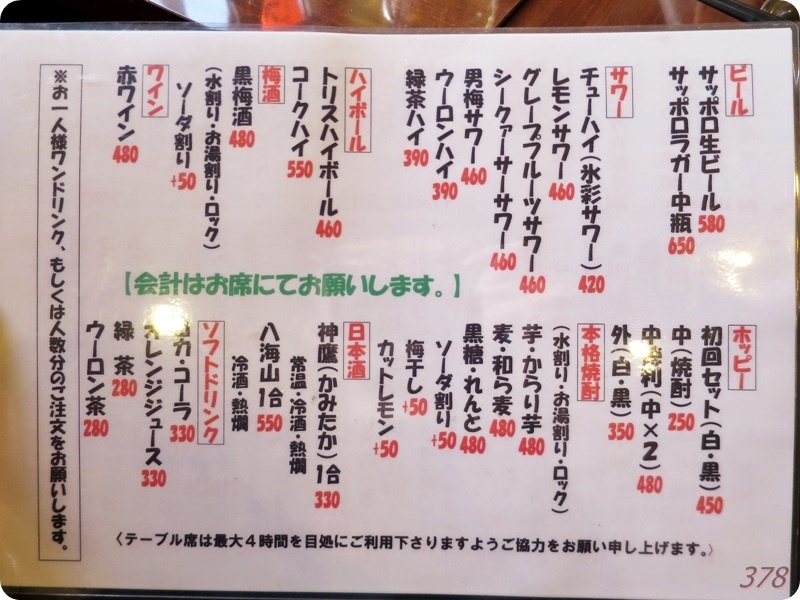 ビール
サッポロ生ビール 580
サッポロラガー中瓶 650
サワー
チューハイ(氷彩サワー) 420
レモンサワー 460
グレープフルーツサワー 460
シークァーサーサワー 460
男梅サワー 460
ウーロンハイ 390
緑茶ハイ 390
ハイボール
トリスハイボール 460
コークハイ 550
梅酒
黒梅酒 480
(水割り・お湯割り・ロック)
ソーダ割り +50
ワイン
赤ワイン 480
【会計はお席にてお願いします。】
ホッピー
初回セット(白・黒) 450
中(焼酎) 250
中 利(中×2) 480
外(白・黒) 350
本格焼酎
(水割り・お湯割り・ロック)
芋・からり芋 480
麦・和ら麦 480
黒糖・れんと 480
ソーダ割り +50
梅干し +50
カットレモン +50
日本酒
神鷹(かみたか)1合 330
常温・冷酒・熱燗
八海山1合 550
冷酒・熱燗
ソフトドリンク
カ・コーラ 330
オレンジジュース 330
緑茶 280
ウーロン茶 280
※お一人様ワンドリンク、もしくは人数分のご注文をお願いします。
〈テーブル席は最大4時間を目処にご利用下さりますようご協力をお願い申し上げます。〉
378